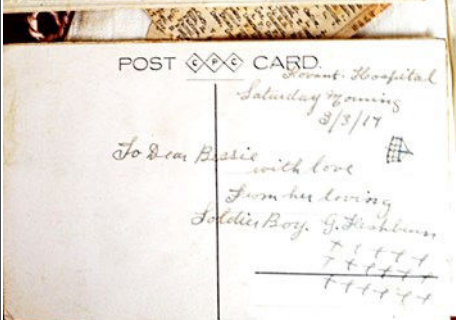 POST CPC CARD.
Fovant. Hospital
Saturday Morning
3/3/17
To Dear Bessie
with love
From her loving
Soldier Boy. G. Fishburn
+ + + + +
+ + + + + +
+ + + + + +